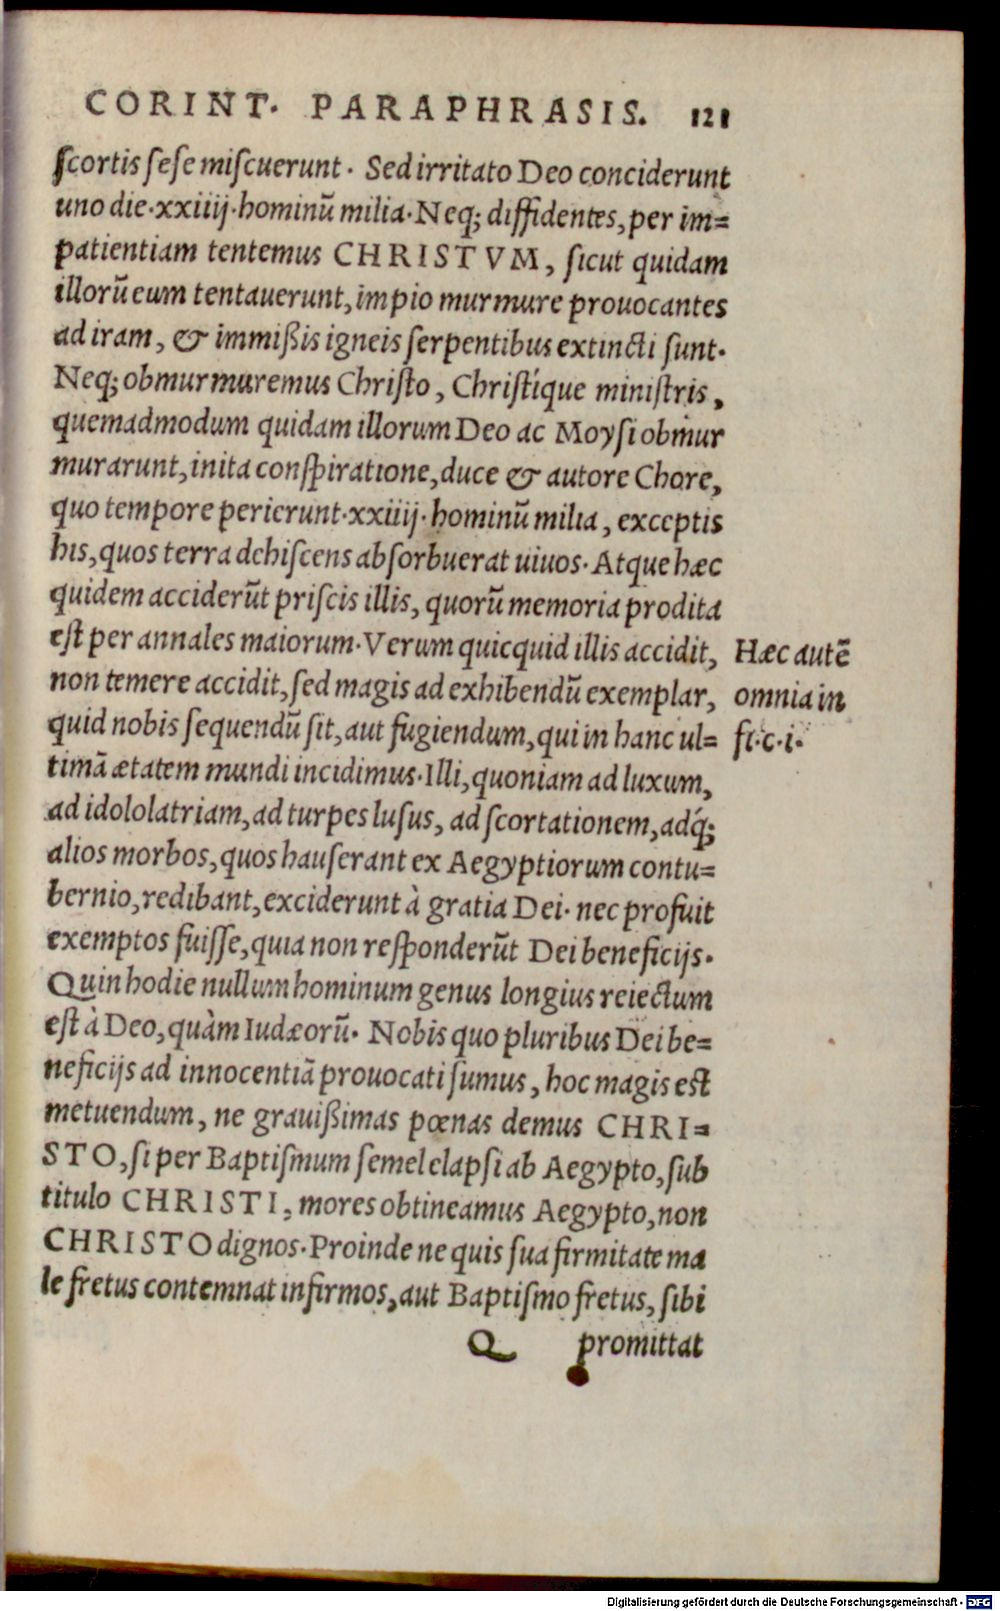 CORINT. PARAPHRASIS. 121
ſcortis ſeſe miſcuerunt. Sed irritato Deo conciderunt
uno die.xxiiij.hominū milia.Neq; diffidentes, per im=
patientiam tentemus CHRISTVM, ſicut quidam
illorū eum tentauerunt, impio murmure prouocantes
ad iram, & immißis igneis ſerpentibus extincti ſunt.
Neq; obmurmuremus Chriſto, Chriſtíque miniſtris,
quemadmodum quidam illorum Deo ac Moyſi obmur
murarunt, inita conſpiratione, duce & autore Chore,
quo tempore perierunt.xxiiij.hominū milia, exceptis
his, quos terra dehiſcens abſorbuerat uiuos. Atque hæc
quidem acciderūt priſcis illis, quorū memoria prodita
eſt per annales maiorum. Verum quicquid illis accidit,
non temere accidit, ſed magis ad exhibendū exemplar,
quid nobis ſequendū ſit, aut fugiendum, qui in hanc ul=
timā ætatem mundi incidimus. Illi, quoniam ad luxum,
ad idololatriam, ad turpes luſus, ad ſcortationem, adq́;
alios morbos, quos hauſerant ex Aegyptiorum contu=
bernio, redibant, exciderunt à gratia Dei. nec profuit
exemptos fuiſſe, quia non reſponderūt Dei beneficijs.
Quin hodie nullum hominum genus longius reiectum
eſt à Deo, quàm Iudæorū. Nobis quo pluribus Dei be=
neficijs ad innocentiā prouocati ſumus, hoc magis eſt
metuendum, ne grauißimas pœnas demus CHRI=
STO, ſi per Baptiſmum ſemel elapſi ab Aegypto, ſub
titulo CHRISTI, mores obtineamus Aegypto, non
CHRISTO dignos. Proinde ne quis ſua firmitate ma
le fretus contemnat infirmos, aut Baptiſmo fretus, ſibi
Q promittat
Hæc autē
omnia in
fi.c.i.
Digitalisierung gefördert durch die Deutsche Forschungsgemeinschaft - DFG